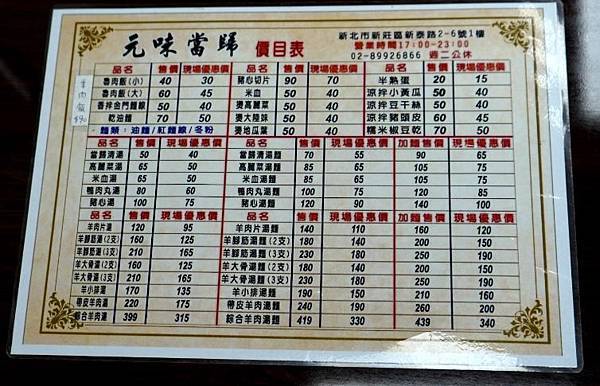 元味當歸 價目表
新北市新莊區新泰路2-6號1樓
營業時間17:00-23:00
02-89926866 週二公休
羊肉飯 $90
品名 售價 現場優惠價 品名 售價 現場優惠價 品名 售價 現場優惠價
魯肉飯(小) 40 30 豬心切片 90 70 半熟蛋 20 15
魯肉飯(大) 60 45 米血 50 40 涼拌小黃瓜 50 40
香拌金門麵線 50 45 燙高麗菜 50 40 涼拌豆干絲 50 40
乾油麵 70 50 燙大陸妹 50 40 涼拌豬頭皮 60 45
麵類：油麵/紅麵線/冬粉 燙地瓜葉 50 40 糯米椒豆乾 70 50
品名 售價 現場優惠價 品名 售價 現場優惠價 加麵售價 現場優惠價
當歸清湯 50 40 當歸清湯麵 70 55 90 65
高麗菜湯 65 50 高麗菜湯麵 85 65 105 75
米血湯 65 50 米血湯麵 85 65 105 75
鴨肉丸湯 80 60 鴨肉丸湯麵 100 75 120 85
豬心湯 100 75 豬心湯麵 120 90 140 100
品名 售價 現場優惠價 品名 售價 現場優惠價 加麵售價 現場優惠價
羊肉片湯 120 95 羊肉片湯麵 140 110 160 120
羊腳筋湯(2支) 160 125 羊腳筋湯麵(2支) 180 140 200 150
羊腳筋湯(3支) 210 165 羊腳筋湯麵(3支) 230 180 250 190
羊大骨湯(2支) 160 125 羊大骨湯麵(2支) 180 140 200 150
羊大骨湯(3支) 210 165 羊大骨湯麵(3支) 230 180 250 190
羊小排湯 170 135 羊小排湯麵 190 150 210 160
帶皮羊肉湯 220 175 帶皮羊肉湯麵 240 190 260 200
綜合羊肉湯 399 315 綜合羊肉湯麵 419 330 439 340